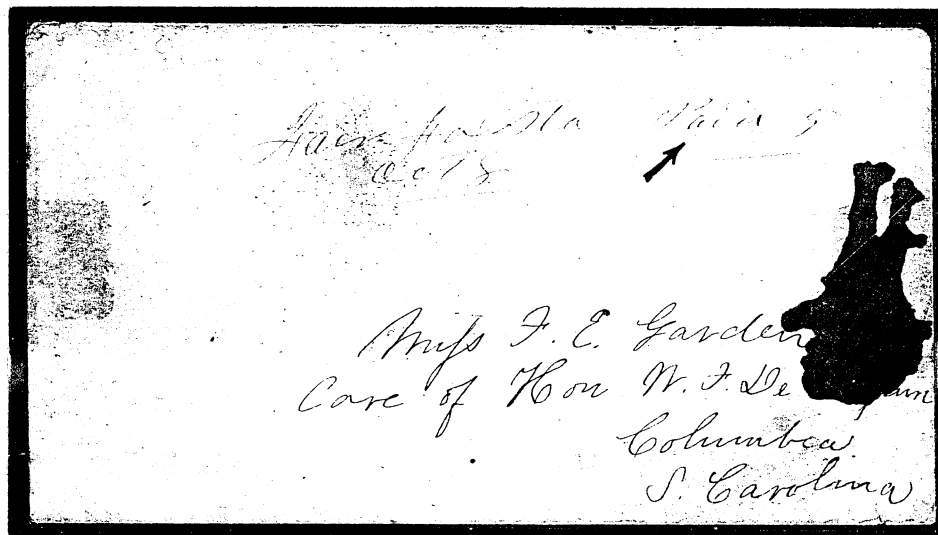 Paid 5
Oct 8
Miss F. E. Garden
Care of Hon W. F. De
Columbia
S. Carolina